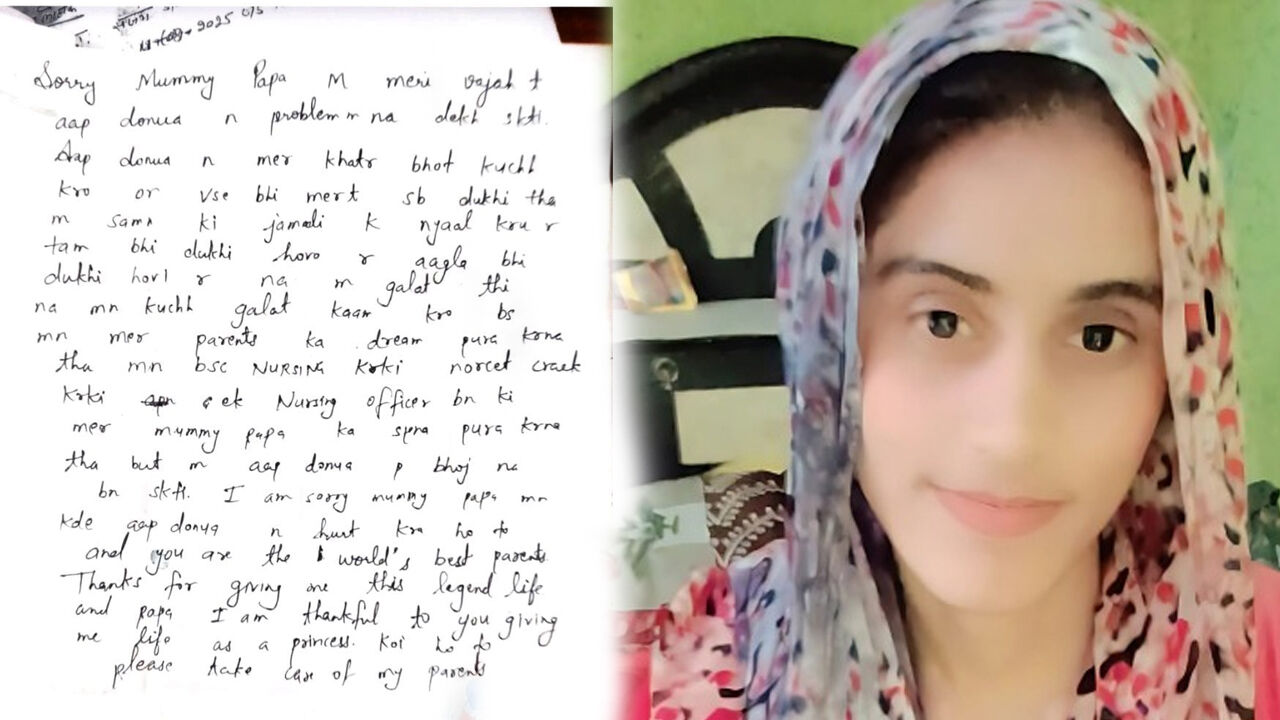 2025
Sorry Mummy Papa M meri vajah t
aap donua n problem m na dekh skti.
Aap donua n mer khatr bhot kuchh
kro or vse bhi mer t sb dukhi tha
m samn ki jamoli k nyaal kru r
tam bhi dukhi horo r aagla bhi
dukhi horl r na m galat thi
na mn kuchh galat kaam kro bs
mn mer parents ka dream pura krna
tha mn bsc NURSING krki norcet crack
krki ek Nursing officer bn ki
mer mummy papa ka spna pura krna
tha but m aap donua p bhoj na
bn skti. I am sorry mummy papa mn
kde aap donua n hurt kra ho to
and you are the world's best parents
Thanks for giving me this legend life
and papa I am thankful to you giving
me life as a princess. Koi ho to
please take care of my parents